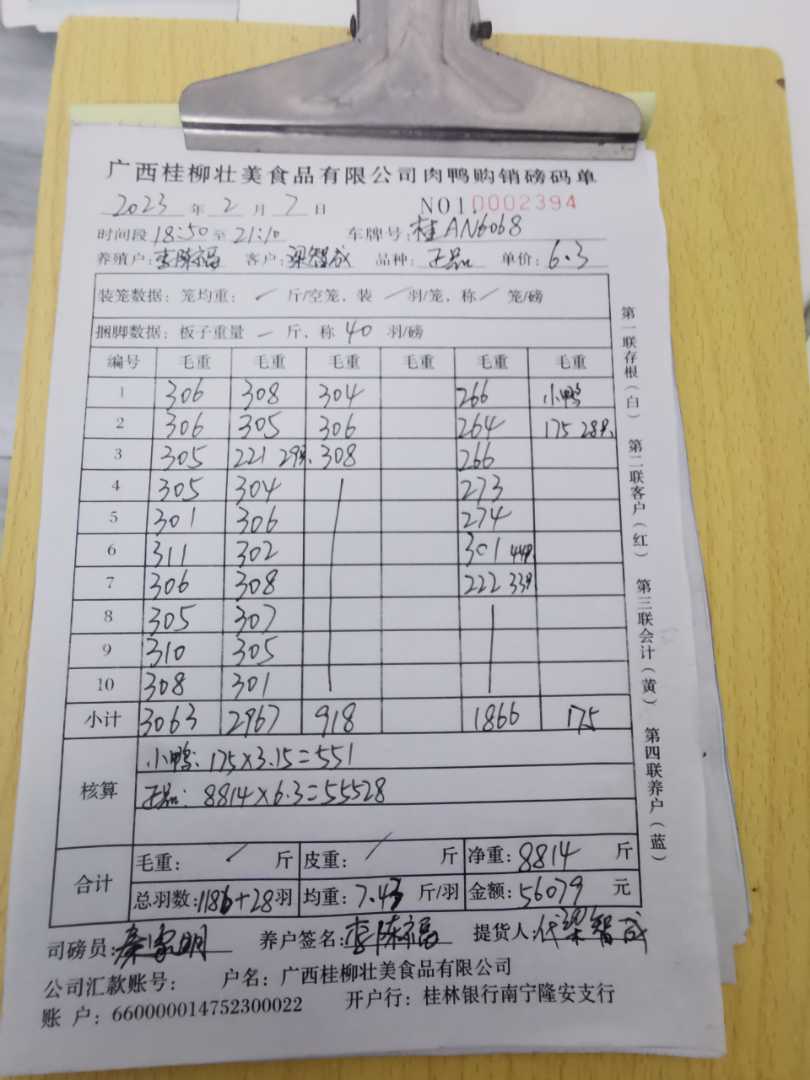 广西桂柳壮美食品有限公司肉鸭购销磅码单
2023 年 2 月 7 日 NO10002394
时间段 18:50 至 21:10 车牌号: 桂AN6068
养殖户: 李陈福 客户: 梁智成 品种: 正品 单价: 6.3
装笼数据: 笼均重: / 斤/空笼, 装 / 羽/笼, 称 / 笼/磅
捆脚数据: 板子重量 — 斤, 称 40 羽/磅
编号 毛重 毛重 毛重 毛重 毛重 毛重
1 306 308 304 266 小鸭
2 306 305 306 264 175 28只
3 305 221 29只 308 266
4 305 304 273
5 301 306 274
6 311 302 301 44只
7 306 308 222 33只
8 305 307
9 310 305
10 308 301
小计 3063 2967 918 1866 175
核算
小鸭: 175×3.15=551
正品: 8814×6.3=55528
合计
毛重: / 斤 皮重: / 斤 净重: 8814 斤
总羽数: 1186+28羽 均重: 7.43 斤/羽 金额: 56079 元
司磅员: 秦家明 养户签名: 李陈福 提货人: 代梁智成
公司汇款账号: 户名: 广西桂柳壮美食品有限公司
账 户: 660000014752300022 开户行: 桂林银行南宁隆安支行
第一联存根(白) 第二联客户(红) 第三联会计(黄) 第四联养户(蓝)